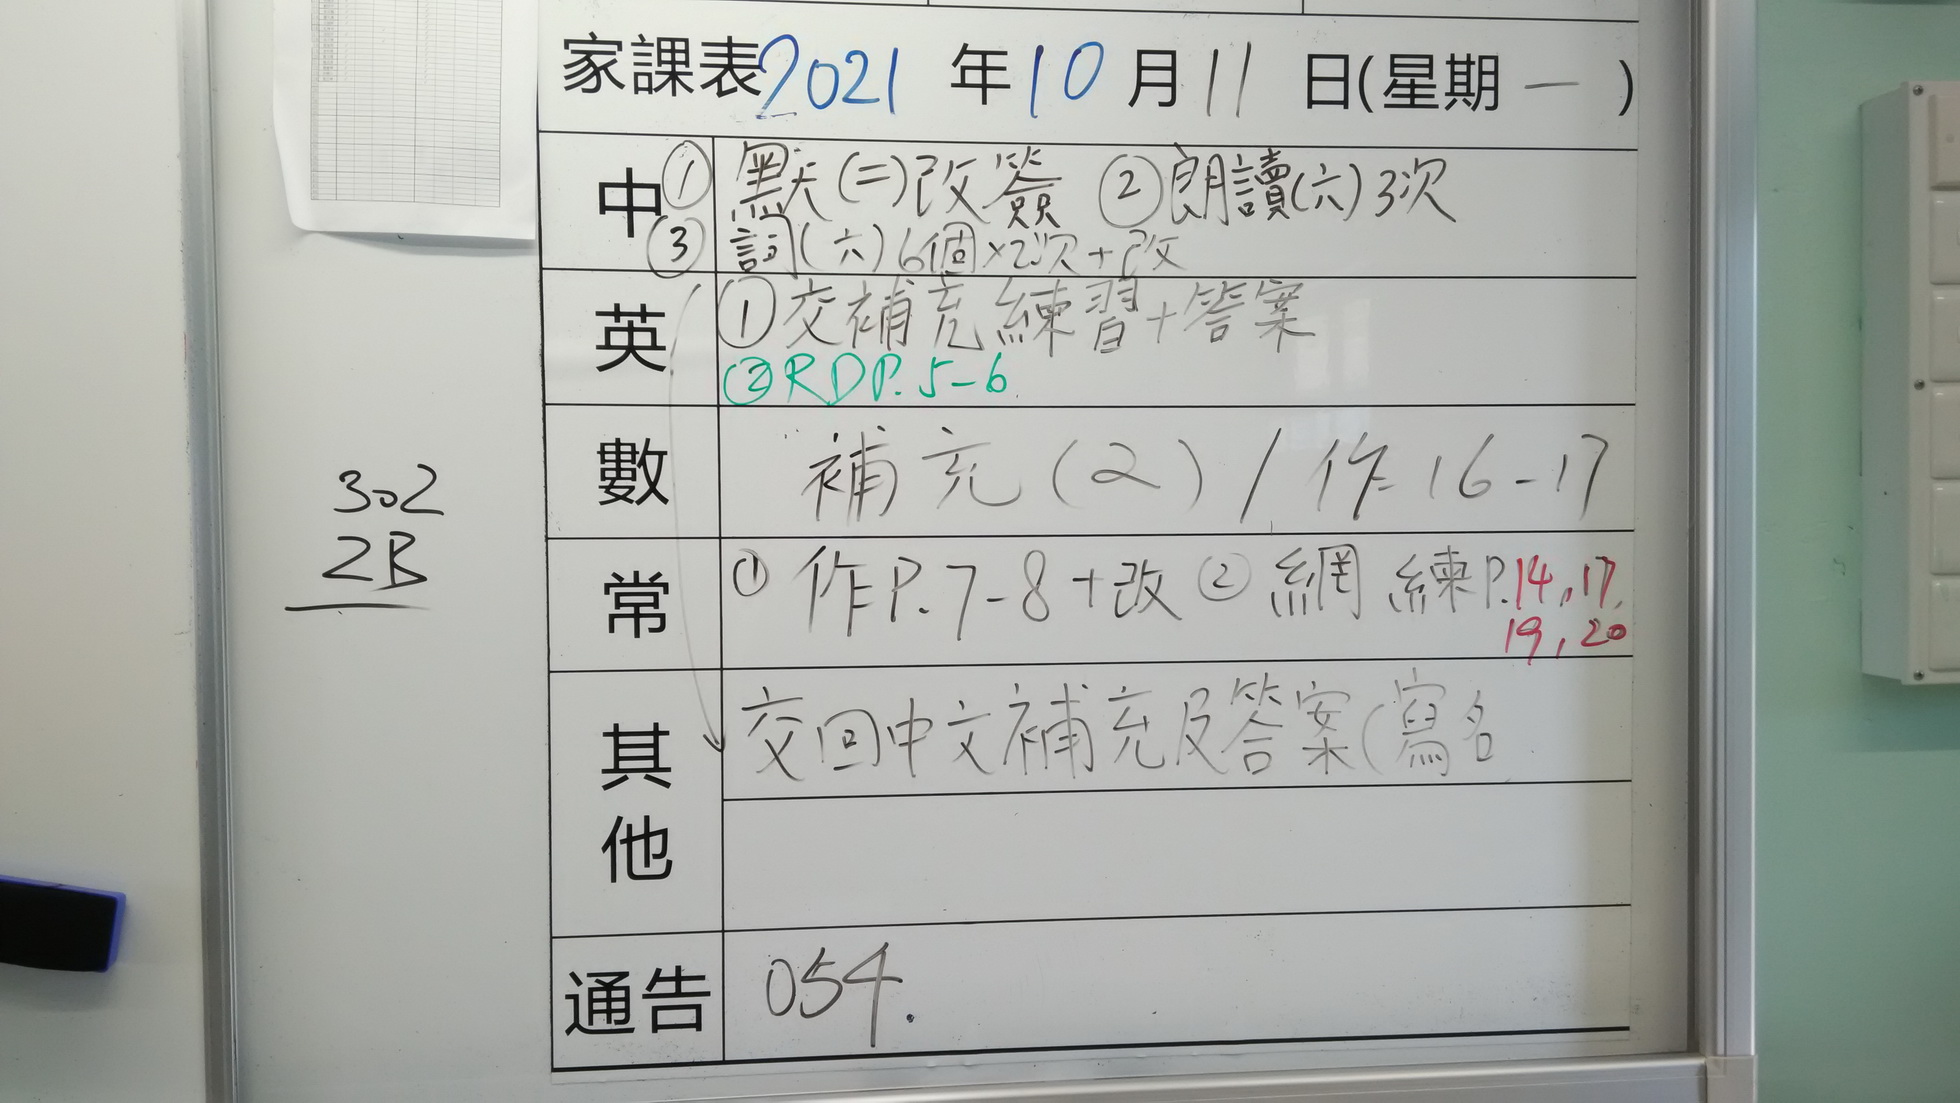 家課表2021年10月11日(星期一)
中
① 默(二)改簽 ②朗讀(六)3次
③ 詞(六)6個×2次+改
英
①交補充練習+答案
②RDP.5-6
數
補充(2)/作16-17
常
①作P.7-8+改②網練P.14,17,
19,20
其他
交回中文補充及答案(寫名
通告
054.
302
2B